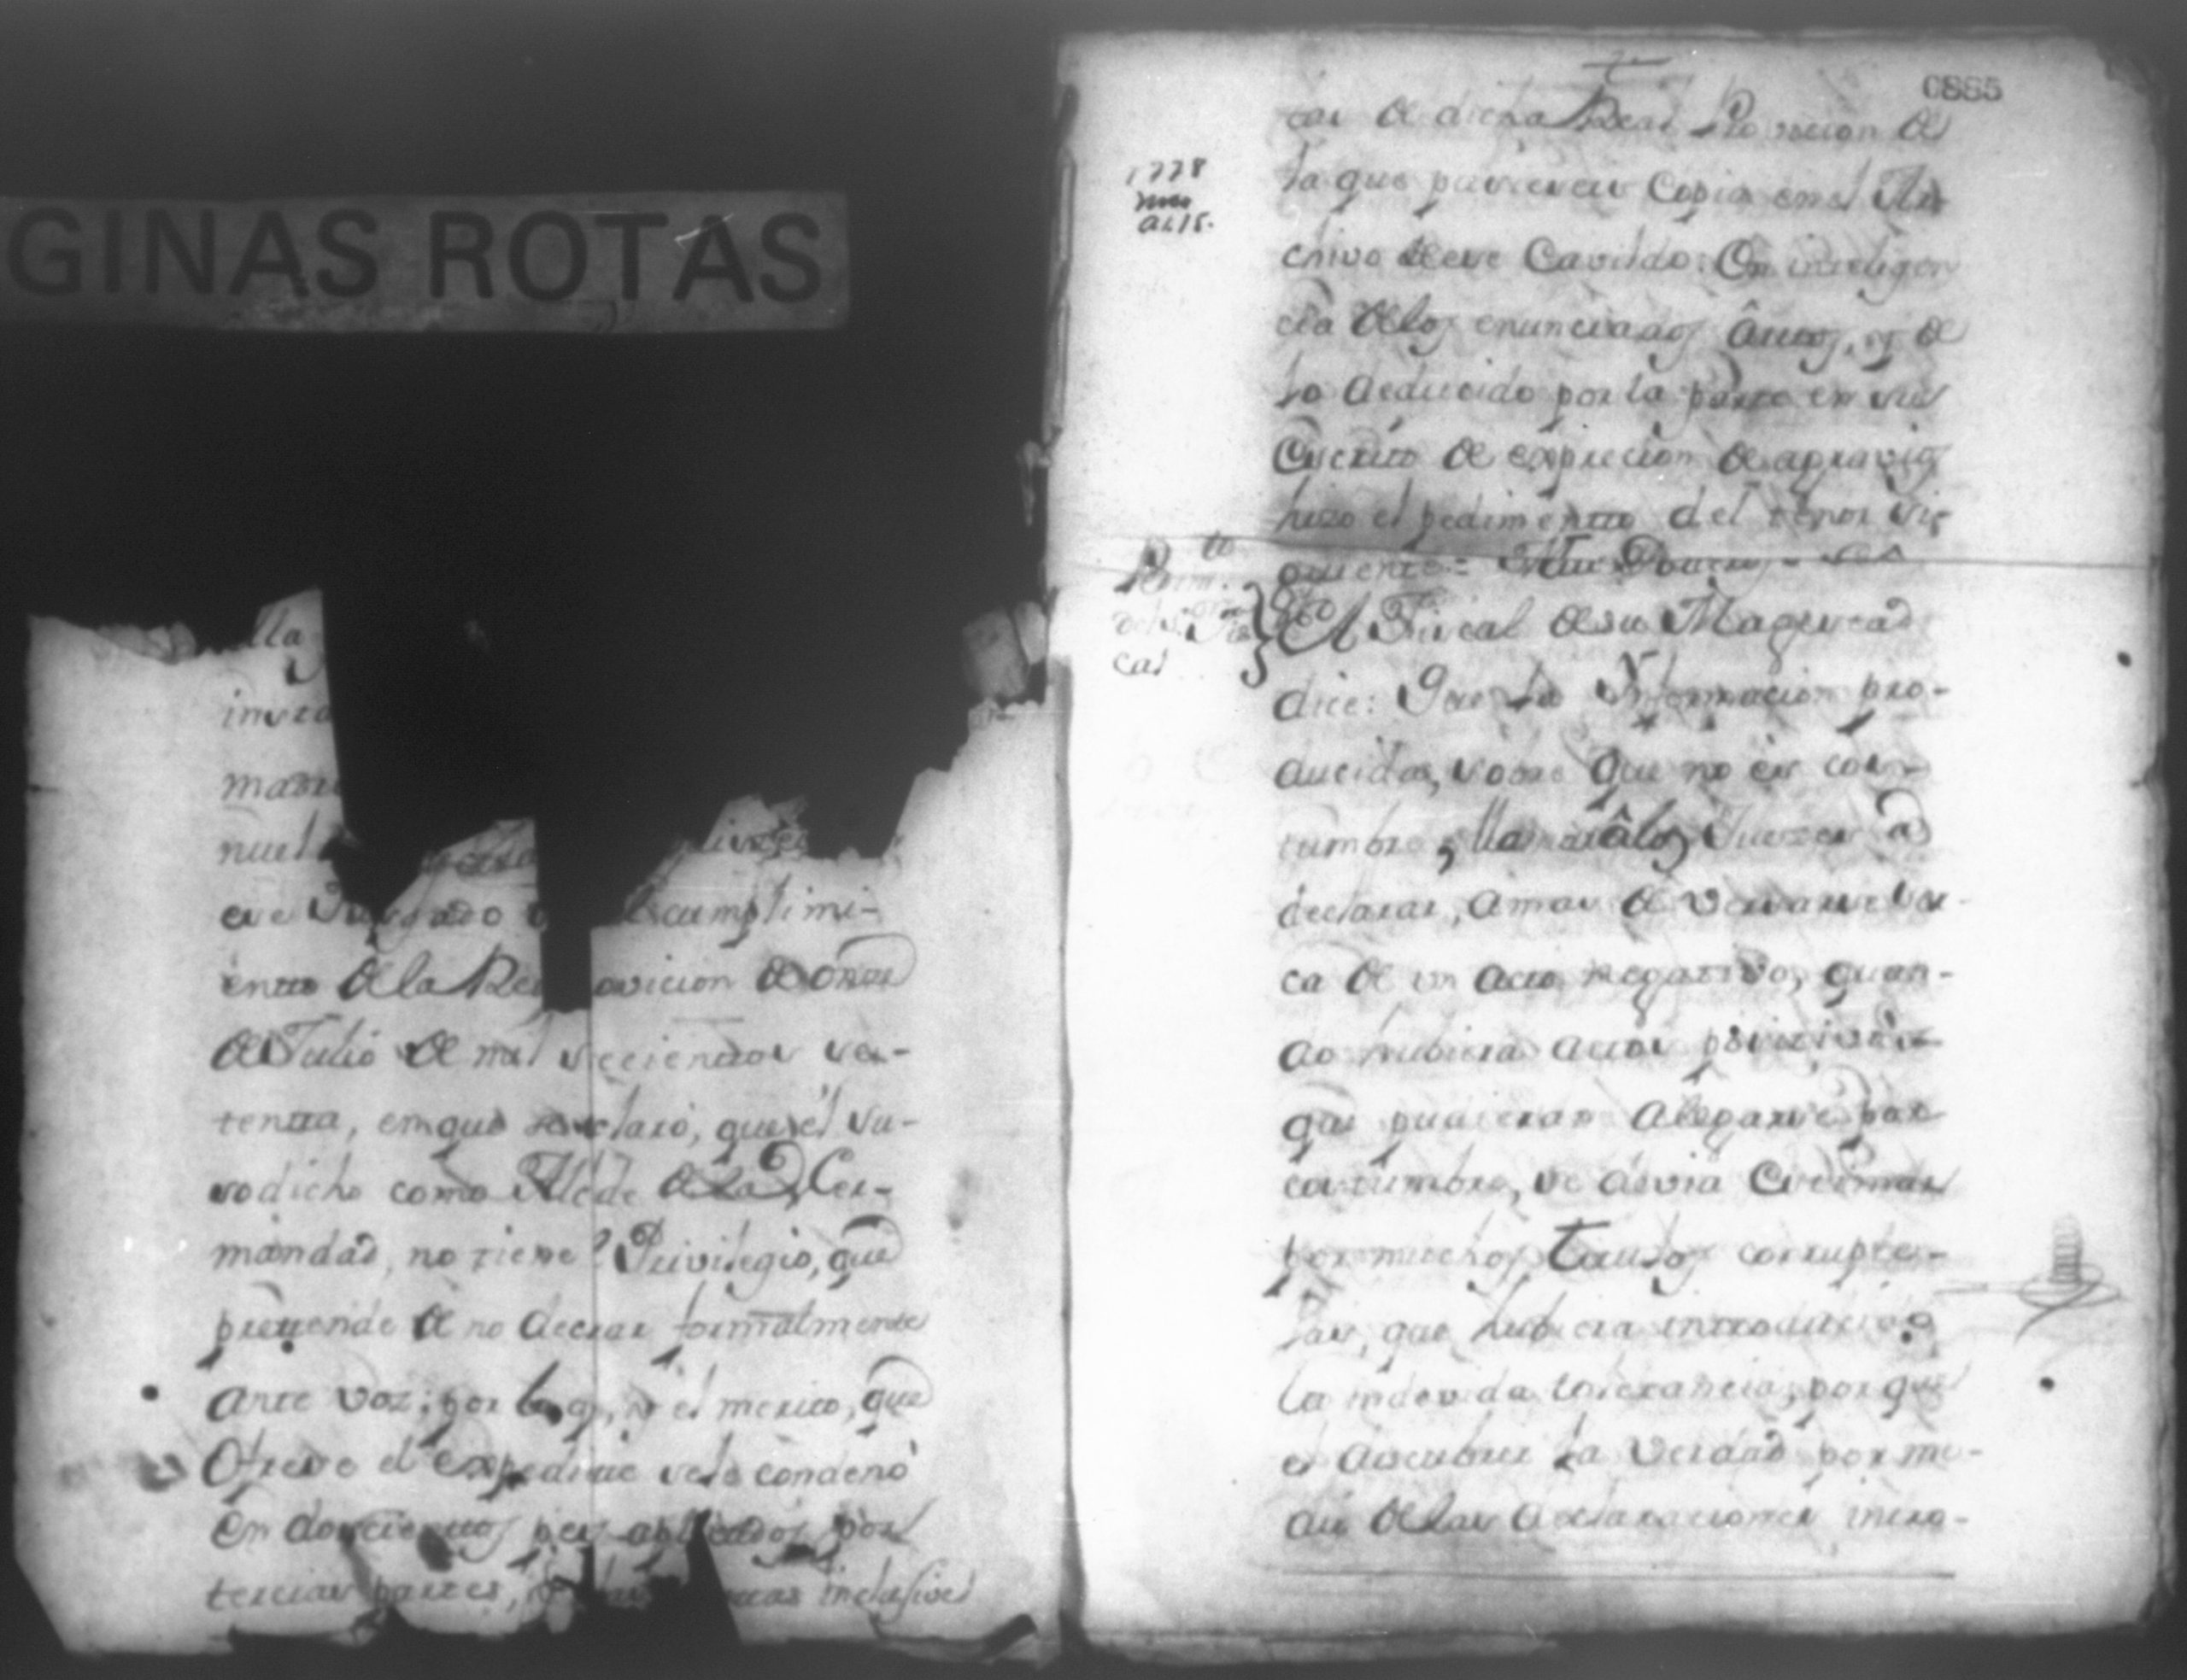 GINAS ROTAS
lla
inst
madre
nuel
ese Juzgado cumplimi-
ento de la Re ovicion de onze
de Julio de mil setecientos se-
tenta, en que se declaró, que el su-
sodicho como Alcde de la Her-
mandad, no tiene Privilegio, que
pretende de no declar formalmente
ante voz; por lo q, y el merito, que
Ofrese el expedite se le condenó
en doscientos ps aplicados por
tercias partes, costas inclusives
0885
tas de dicha Real Provicion de
la que pusieren Copia en el Ar
chivo de ese Cavildo: En inteligen
cia de los enunciados âutos, y de
lo deducido por la parte en su
Escrito de exprecion de agravios
hizo el pedimento del tenor si-
guiente: Mui Poderoso Sôr
1778
als.
Pedim.to
del Sor Fis
cal
El Fiscal de su Magestad
dice: Que la Ynformacion pro-
ducida, sobre que no es cos-
tumbre, llamar âlos Jueces a
declarar, amas de versarse ser-
ca de un acto negativo, quan-
do hubiera actos pocitivos
que pudieran alegarse por
costumbre, se devia Estimar
por muchos titulos corrupte-
las, que hubiera introducido
la indevida tolerancia; por que
el descubrir la verdad por me-
dio de las declaraciones intro-